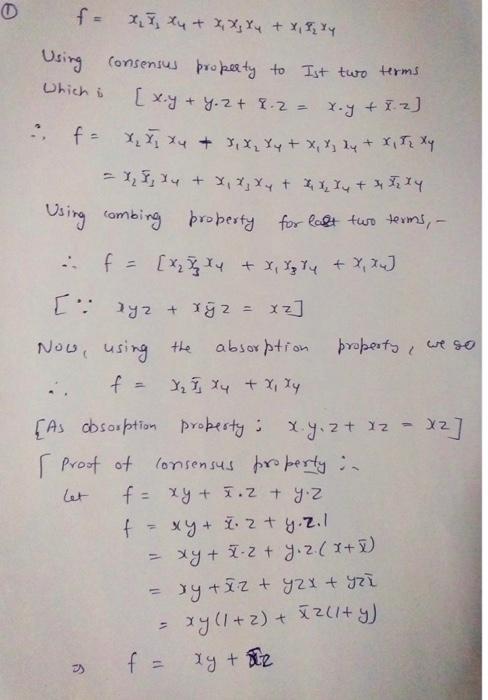 ① f = x₂ x̄₃ x₄ + x₁ x₃ x₄ + x₁ x̄₂ x₄
Using consensus property to Ist two terms
Which is [ x.y + y.z + x̄.z = x.y + x̄.z ]
∴ f = x₂ x̄₃ x₄ + x₁ x₂ x₄ + x₁ x₃ x₄ + x₁ x̄₂ x₄
= x₂ x̄₃ x₄ + x₁ x₃ x₄ + x₁ x₂ x₄ + x₁ x̄₂ x₄
Using combing property for last two terms, -
∴ f = [x₂ x̄₃ x₄ + x₁ x₃ x₄ + x₁ x₄]
[∵ xyz + xȳz = xz]
Now, using the absorption property, we so
∴ f = x₂ x̄₃ x₄ + x₁ x₄
[As absorption property : x.y.z + xz = xz]
[ Proof of consensus property :-
Let f = xy + x̄.z + y.z
f = xy + x̄.z + y.z.1
= xy + x̄.z + y.z.(x+x̄)
= xy + x̄z + yzx + yzx̄
= xy(1+z) + x̄z(1+y)
⇒ f = xy + x̄z